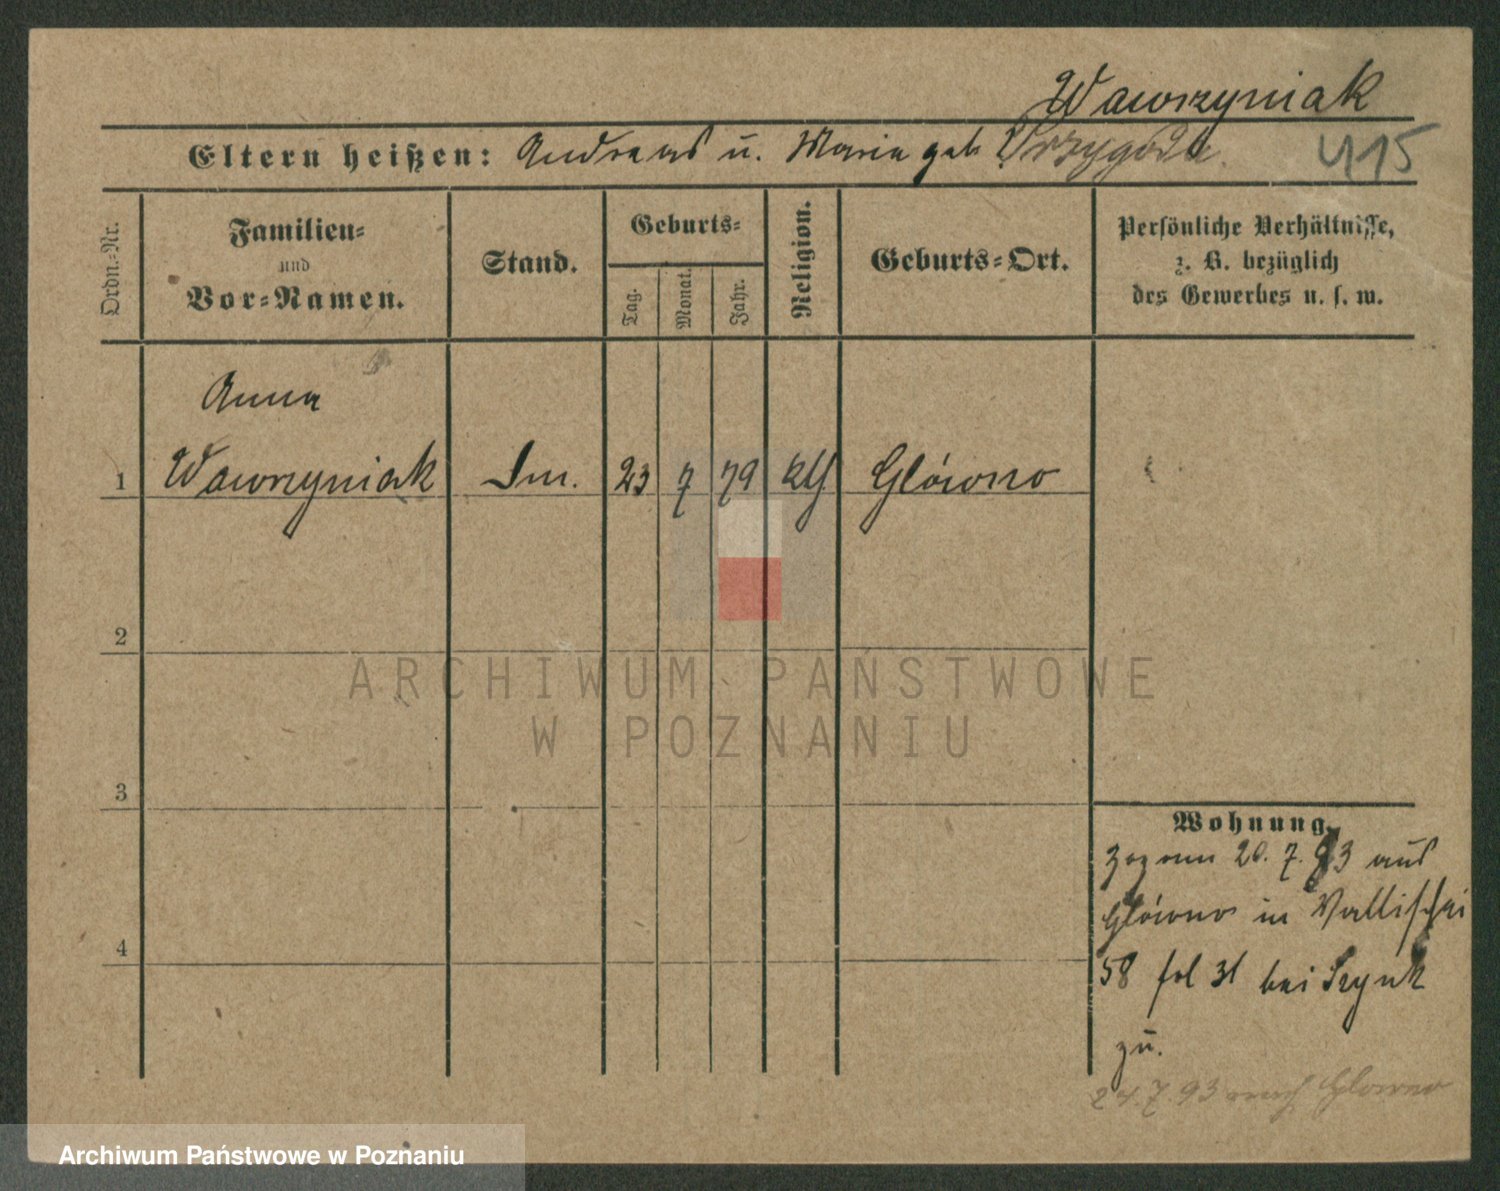 Wawrzyniak
Eltern heißen: Andreas u. Maria geb Przygoda.
415
Ordn.-Nr.
Familien-
und
Vor-Namen.
Stand.
Geburts-
Tag.
Monat.
Jahr.
Religion.
Geburts-Ort.
Persönliche Verhältnisse,
z. B. bezüglich
des Gewerbes u. s. w.
Anna
1 Wawrzyniak 23 7 79 klg Główno
2
ARCHIWUM PAŃSTWOWE
W POZNANIU
3
Wohnung.
zog am 20. 7. 93 aus
Główno in Wallischei
58 fol 31 bei
4
zu.
24. 7. 93 nach Glowno
Archiwum Państwowe w Poznaniu